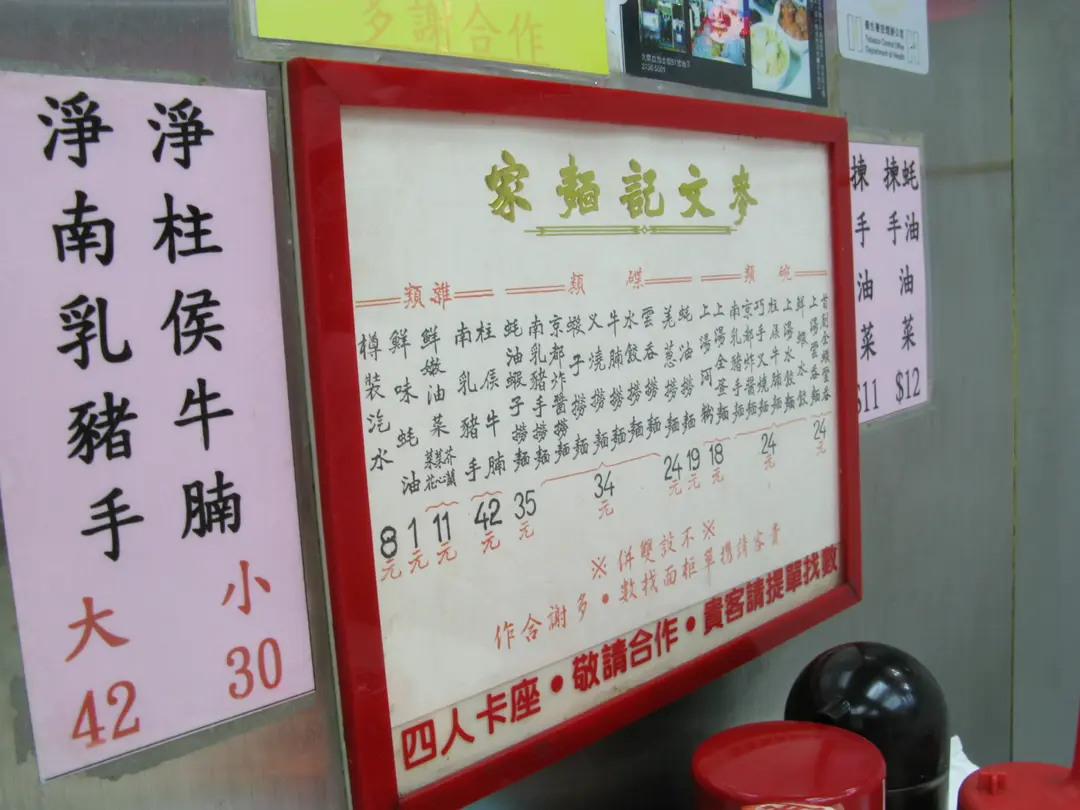 多謝合作
衞生署控煙辦公室
Tobacco Control Office
Department of Health
淨柱侯牛腩
小
30
淨南乳豬手
大
42
麥文記麵家
碗類
首創全蝦雲吞
24元
上湯雲吞麵
鮮蝦水餃
上湯水餃麵
柱侯牛腩麵
巧手叉燒麵
京都炸醬麵
南乳豬手麵
24元
上湯全蛋麵
上湯河粉
18元
碟類
蚝油撈麵
19元
羌葱撈麵
24元
雲吞撈麵
水餃撈麵
牛腩撈麵
叉燒撈麵
蝦子撈麵
京都炸醬撈麵
南乳豬手撈麵
34元
蚝油蝦子撈麵
35元
雜類
柱侯牛腩
南乳豬手
42元
鮮嫩油菜
芥蘭
菜心
菜花
11元
鮮味蚝油
1元
樽裝汽水
8元
※不設雙併※
貴客請攜單柜面找數•多謝合作
四人卡座•敬請合作•貴客請提單找數
蚝油
揀手油菜
$12
揀手油菜
$11